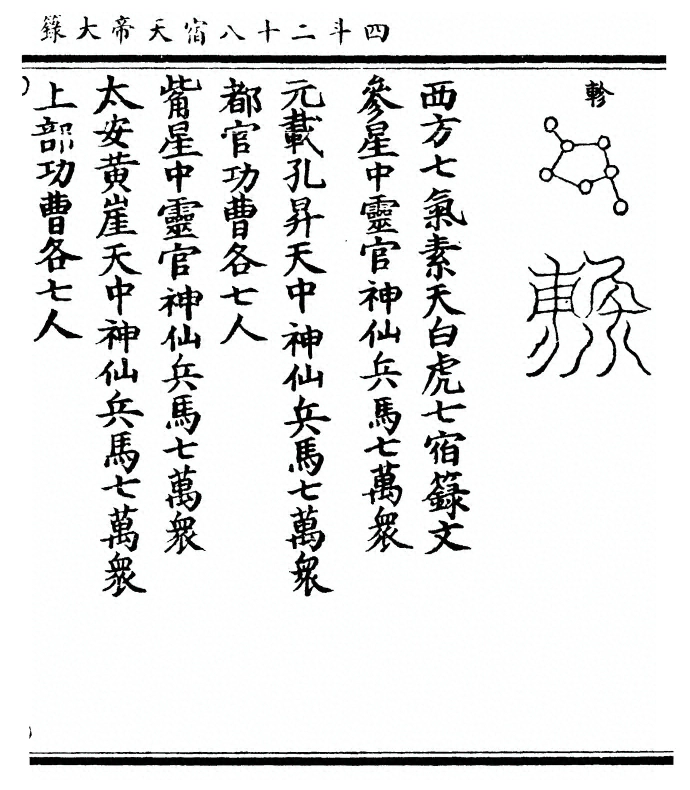 四斗二十八宿天帝大籙
軫
西方七氣素天白虎七宿籙文
參星中靈官神仙兵馬七萬衆
元載孔昇天中神仙兵馬七萬衆
都官功曹各七人
觜星中靈官神仙兵馬七萬衆
太安黃崖天中神仙兵馬七萬衆
上部功曹各七人